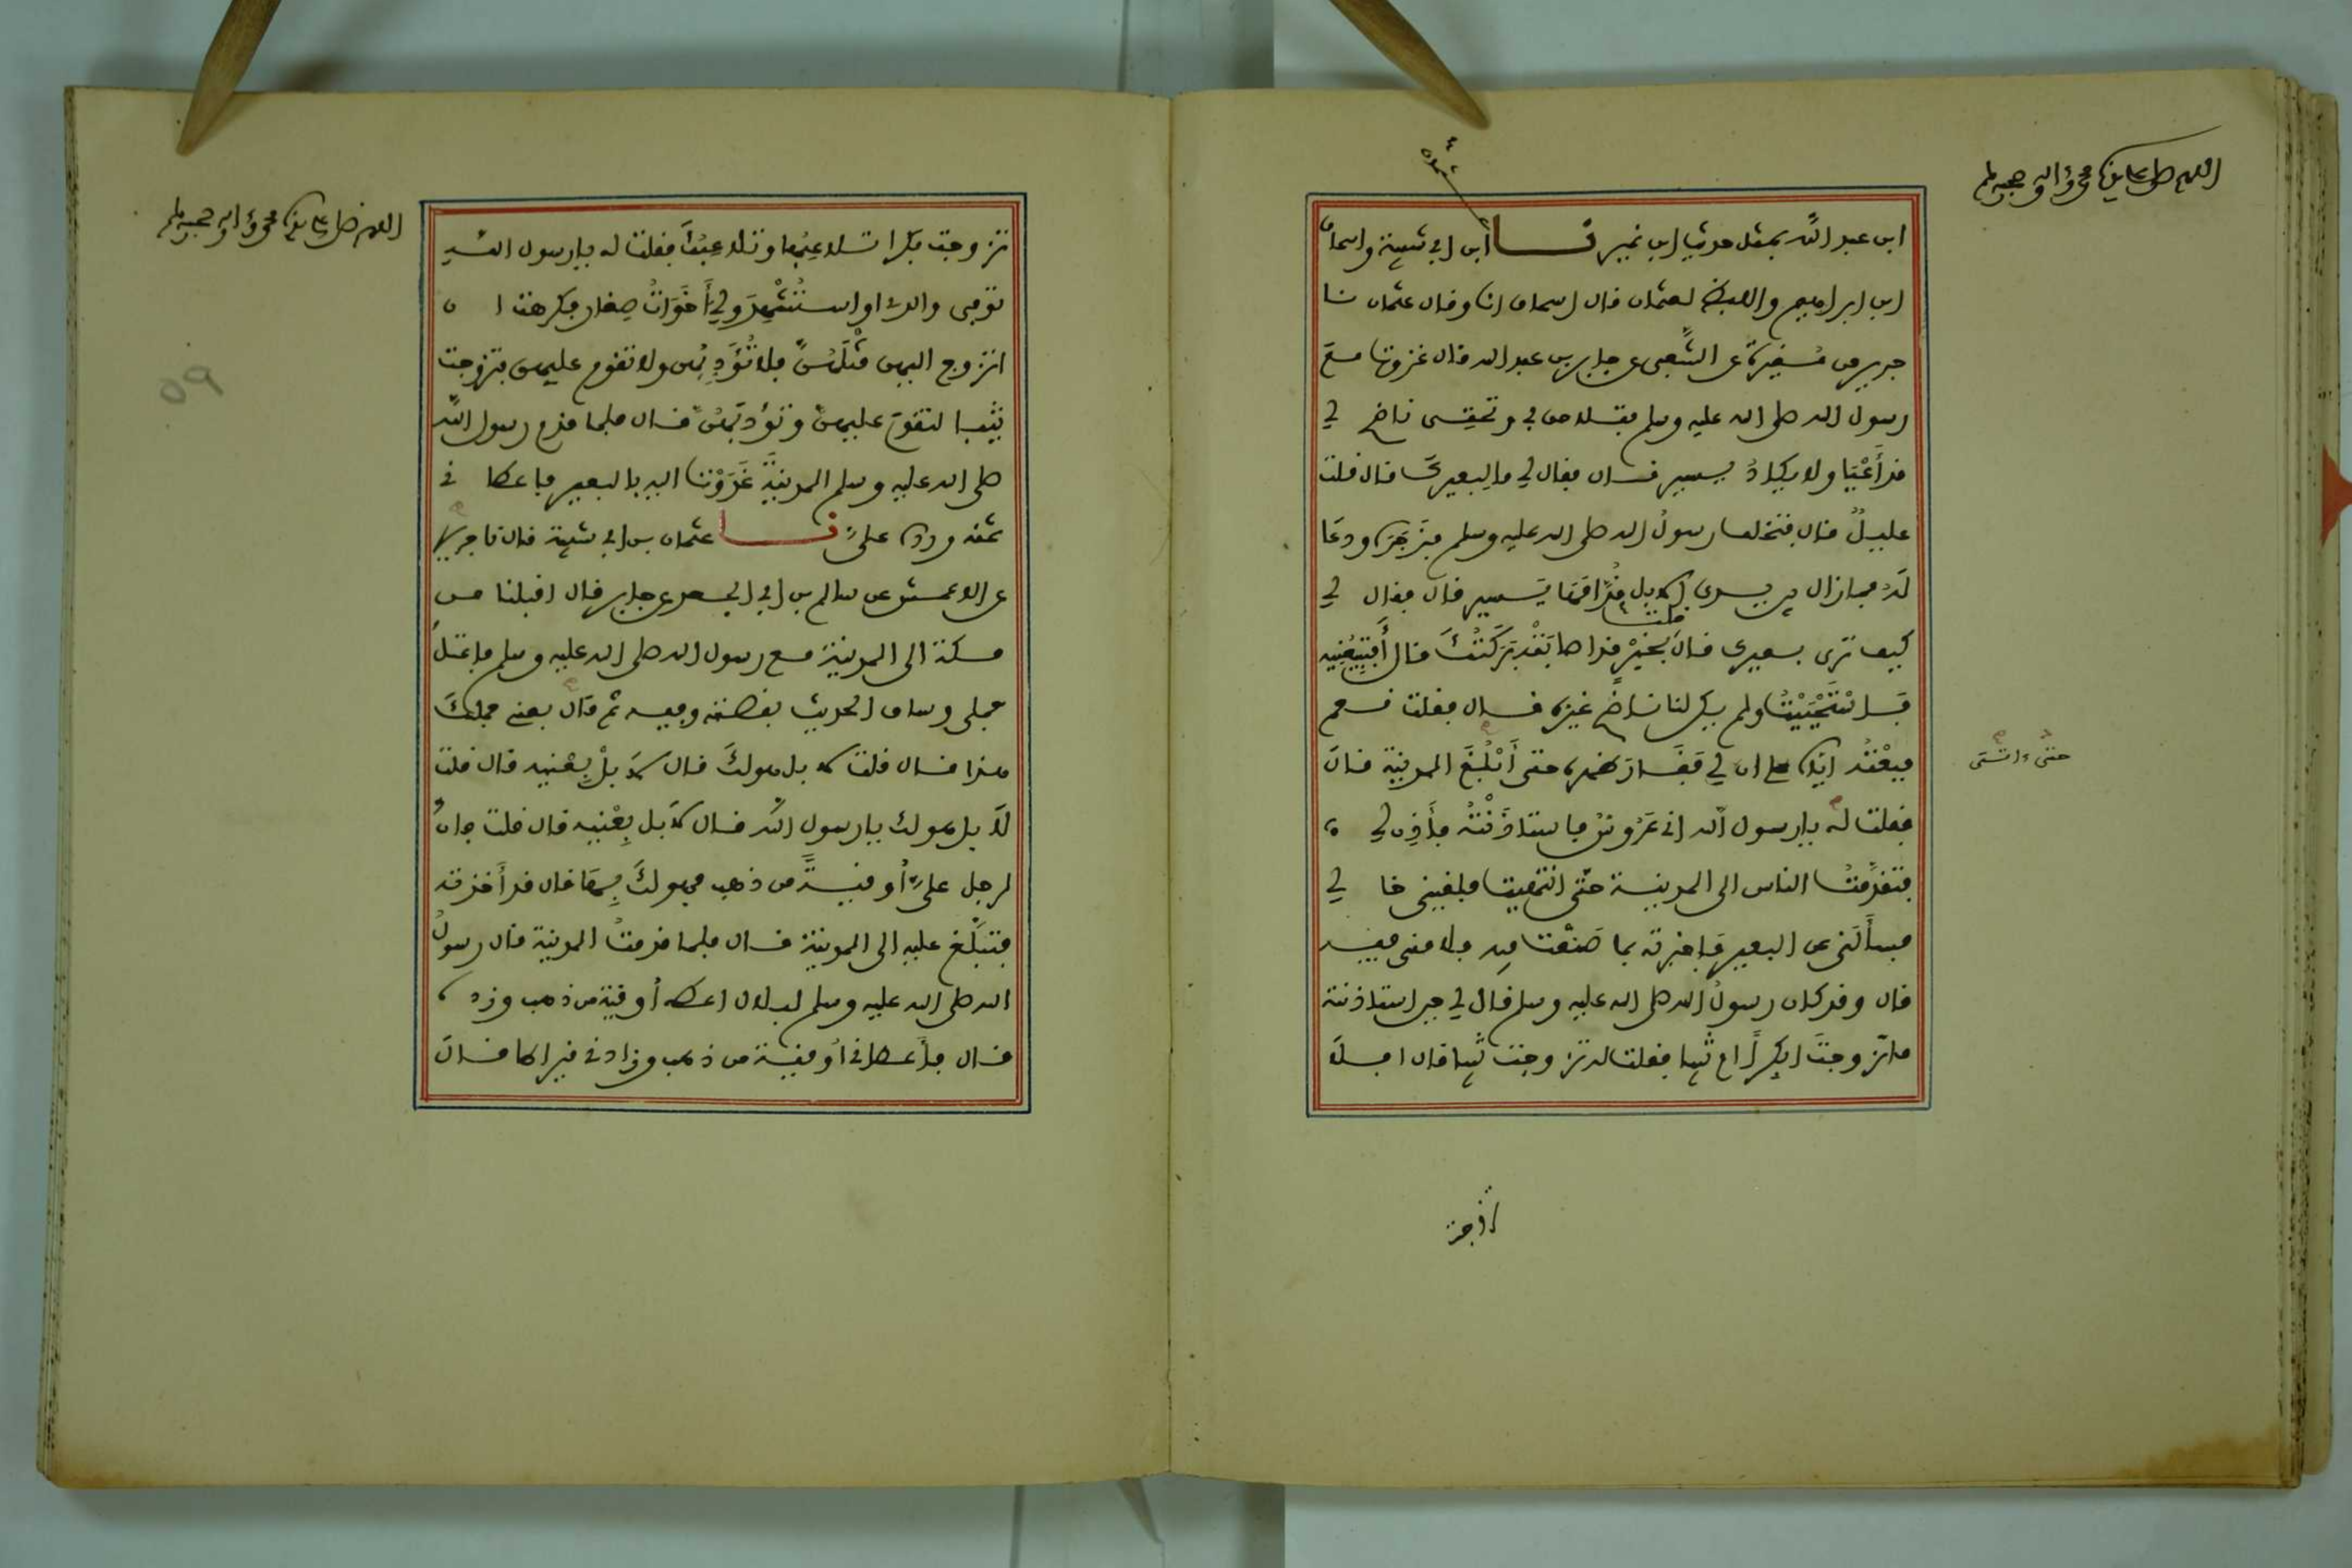 اللهم صل على سيدنا محمد وآله وصحبه وسلم
ابن عبد الله بمثل حديث ابن نمير نا ابن ابي شيبة واسحاق
ابن ابراهيم واللفظ لعثمان قال اسحاق انا وقال عثمان نا
جرير عن مُغيرة عن الشَّعبي عن جابر بن عبد الله قال غزوت مع
رسول الله صلى الله عليه وسلم فتلاحق بي وتحتي ناضح لي
قد أَعْيَا ولا يكادُ يسير قال فقال لي ما لبعيرك قال قلت
عليلٌ قال فتخلف رسولُ الله صلى الله عليه وسلم فزجره ودعَا
لَه فما زال بين يدي الابل قُدَّامَهَا يَسير قال فقال لي
كيف ترى بعيرك قال قلت بخَيْرٍ قد اصابَتْهُ بَرَكَتُكَ قال أَفَتَبِيعُنِيه
فاسْتَحْيَيْتُ ولم يكن لنا ناضحٌ غيره قال فقلت نعم
فبِعْتُه اياه على ان لي فَقَارَ ظهره حتى أَبْلُغَ المدينة قال
حتى انتهى
فقلت له يا رسول الله اني عَرُوسٌ فاستاذَنْتُه فأَذِن لي
فتقدَّمتُ الناس الى المدينة حتى انتهيت فلقيني خالي
فسأَلَني عن البعير فاخبرته بما صَنَعْت فيه فلامني فيه
قال وقد كان رسولُ الله صلى الله عليه وسلم قال لي حين استاذنته
ما تزوجتَ ابكراً ام ثيبا فقلت له تزوجت ثيبا قال افلا
تزوجت
اللهم صل على سيدنا محمد وآله وصحبه وسلم
تزوجت بكرا تلاعِبُها وتلاعِبُكَ فقلت له يا رسول الله
توفي والدي او استُشْهِدَ ولي أَخَوَاتٌ صِغار فكرهت ان
اتزوج اليهن مثْلَهُنَّ فلا تُؤَدِّبُهن ولا تقوم عليهن فتزوجت
ثيبا لتقومَ عليهنَّ وتؤدبَهنَّ قال فلما قدم رسول الله
صلى الله عليه وسلم المدينةَ غَدَوْتُ اليه بالبعير فاعطاني
ثمنه ورده عليَّ نا عثمان بن ابي شيبة قال نا جرير
عن الاعمش عن سالم بن ابي الجعد عن جابر قال اقبلنا من
مكة الى المدينة مع رسول الله صلى الله عليه وسلم فاعتلَّ
جملي وساق الحديث بقصته وفيه ثم قال بعني جملك
هذا قال قلت لا بل هو لكَ قال لا بلْ بِعْنِيه قال قلت
لا بل هو لك يا رسول الله قال لا بل بِعْنيه قال قلت فان
لرجل عليَّ أُوقيةً من ذهب فهو لكَ بِهَا قال قد أَخذته
فتبلَّغ عليه الى المدينة قال فلما قدمتُ المدينة قال رسولُ
الله صلى الله عليه وسلم لبلال اعطه أُوقية من ذهب وزده
قال فأَعطاني أُوقية من ذهب وزادني قيراطا قال
٥٩